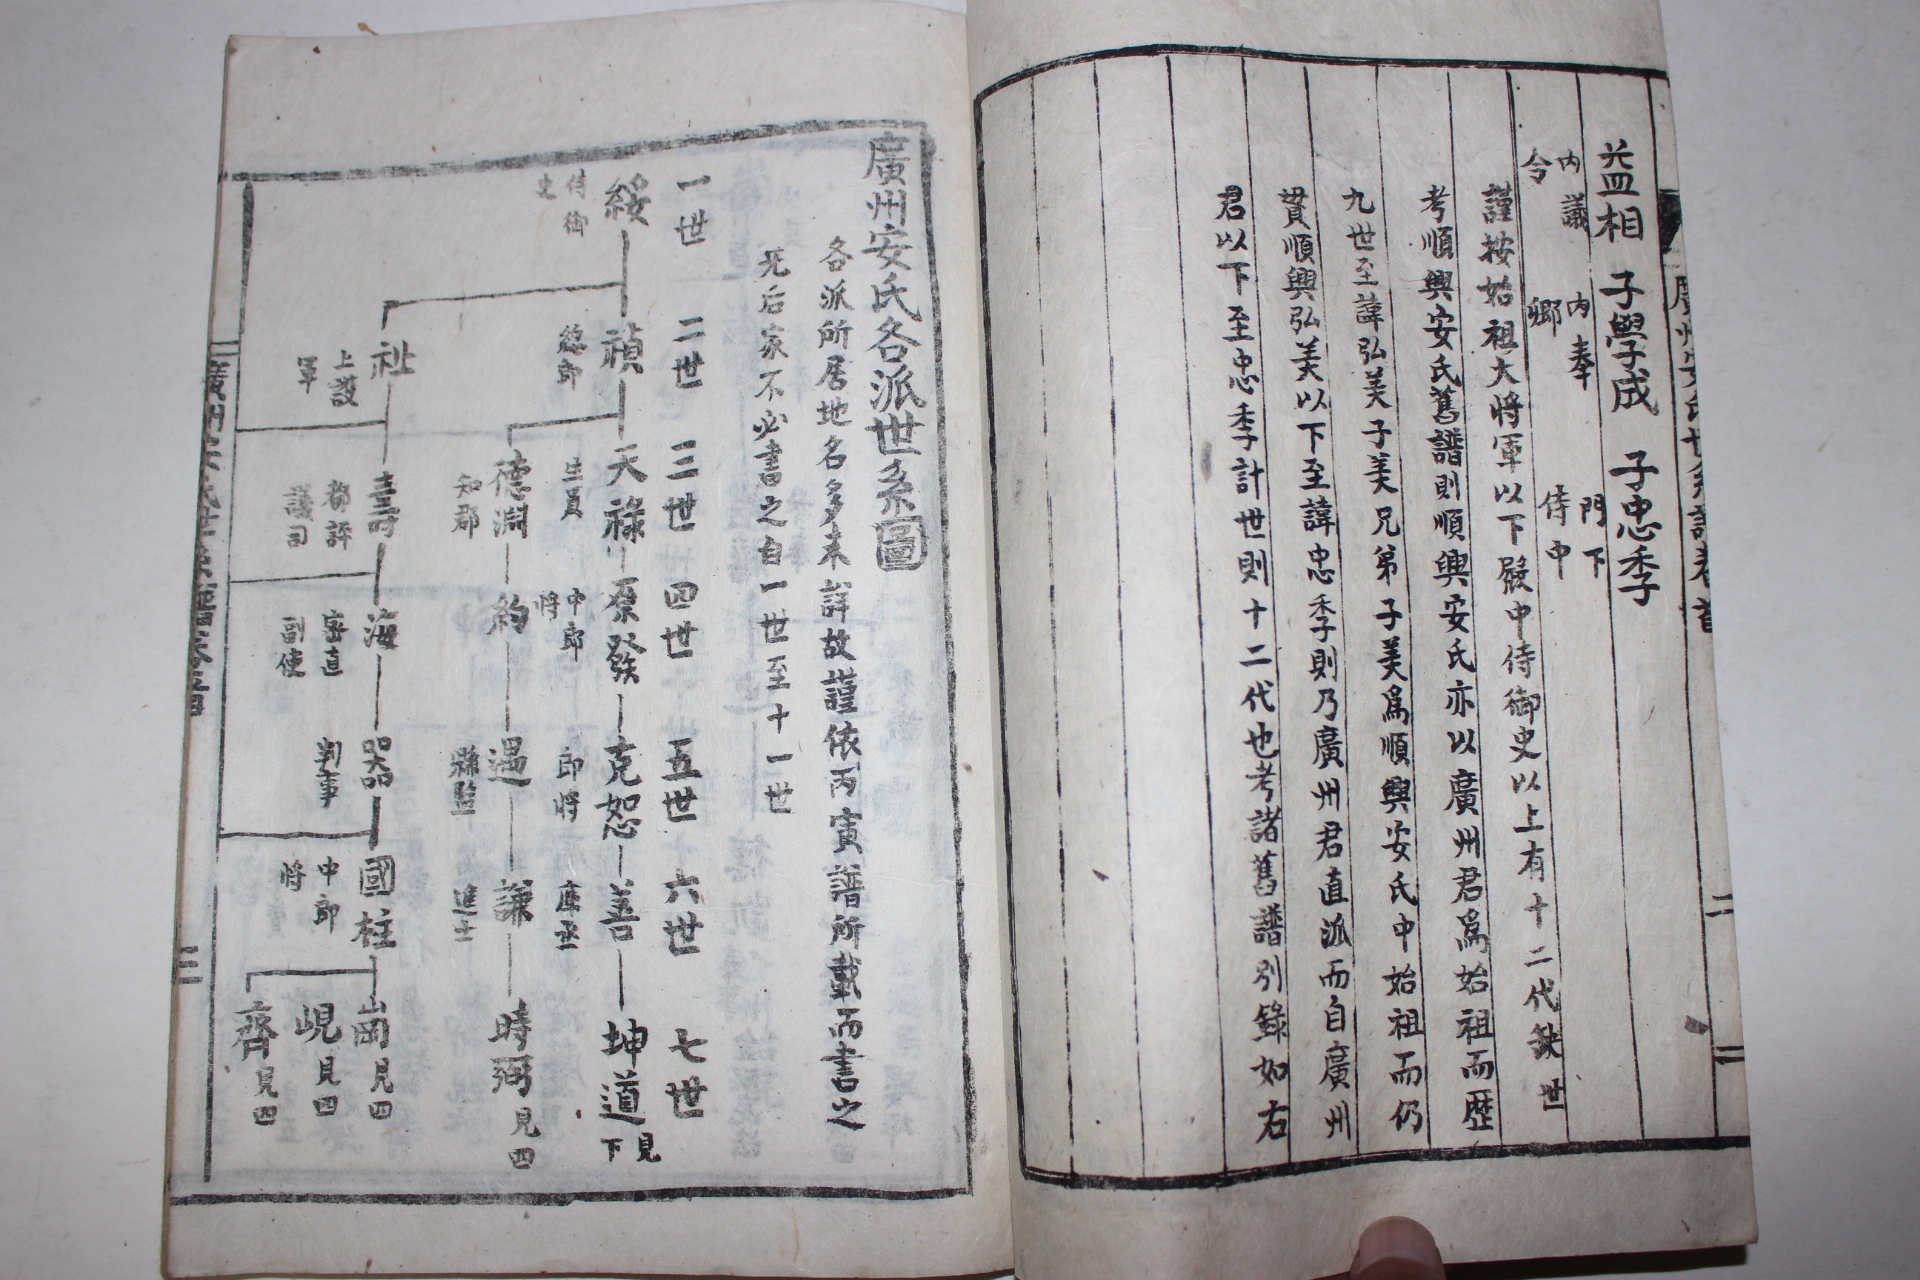 益相 子學成 子忠季
內議令 內奉卿 門下侍中
謹按始祖大將軍以下殿中侍御史以上有十二代缺世
考順興安氏舊譜則順興安氏亦以廣州君爲始祖而歷
九世至諱弘美子美兄弟子美爲順興安氏中始祖而仍
貫順興弘美以下至諱忠季則乃廣州君直派而自廣州
君以下至忠季計世則十二代也考諸舊譜別錄如右
二
廣州安氏各派世系圖
各派所居地名多未詳故謹依丙寅譜所載而書之
死后家不必書之自一世至十一世
一世 二世 三世 四世 五世 六世 七世
綏 禎 天祿 原發 克恕 善 坤道 見下
侍御史 總郎 生員 中郎將 郎將 庫丞
德淵 約 遇 謙 時弼 見四
知郡 縣監 進士
祉 壽 海 器 國柱 崗 見四
上護軍 都評議司 密直副使 判事 中郎將
峴 見四
齊 見四
三